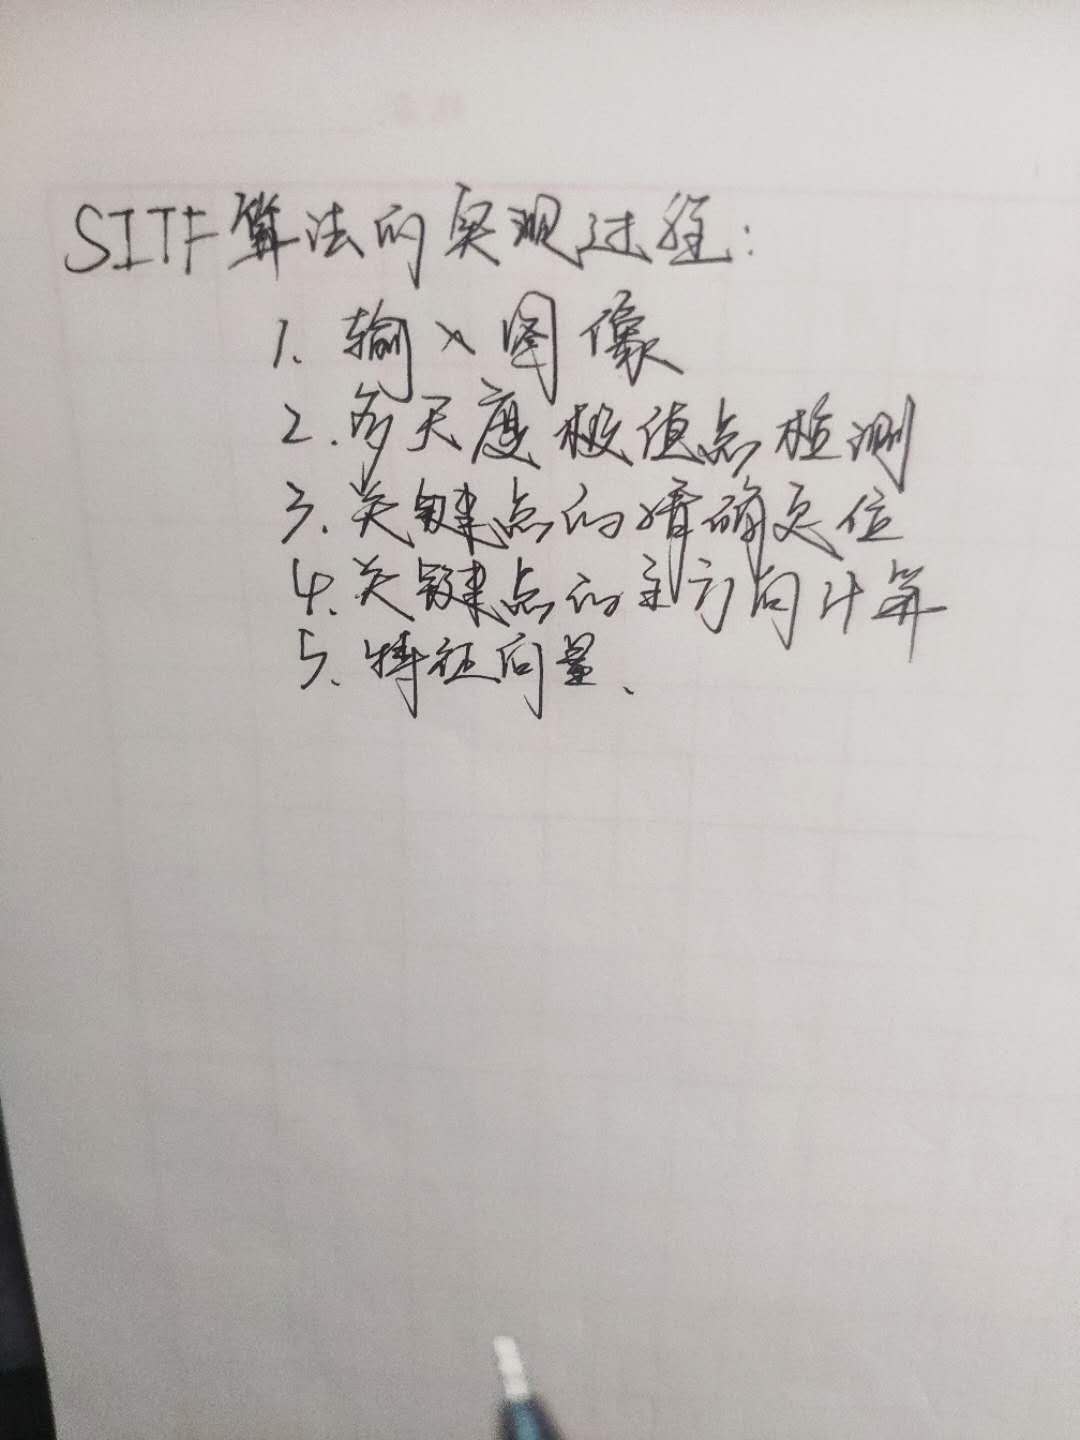 SITF算法的实现过程:
1. 输入图像
2. 多尺度极值点检测
3. 关键点的精确定位
4. 关键点的主方向计算
5. 特征向量、